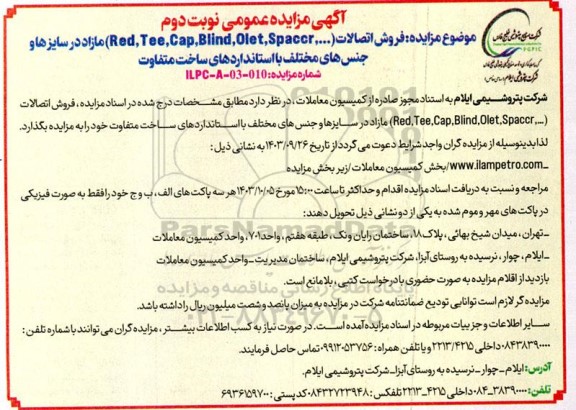 آگهی مزایده عمومی نوبت دوم
موضوع مزایده: فروش اتصالات (...,Red,Tee,Cap,Blind,Olet,Spaccr) مازاد در سایزها و
جنس‌های مختلف با استانداردهای ساخت متفاوت
شماره مزایده: ILPC-A-03-010
PGPIC
شرکت پتروشیمی ایلام به استناد مجوز صادره از کمیسیون معاملات، در نظر دارد مطابق مشخصات درج شده در اسناد مزایده، فروش اتصالات
(...,Red,Tee,Cap,Blind,Olet,Spaccr) مازاد در سایزها و جنس های مختلف با استانداردهای ساخت متفاوت خود را به مزایده بگذارد.
لذا بدینوسیله از مزایده گران واجد شرایط دعوت می گردد از تاریخ ۱۴۰۳/۰۹/۲۶ به نشانی ذیل:
_www.ilampetro.com/بخش کمیسیون معاملات/زیر بخش مزایده
مراجعه و نسبت به دریافت اسناد مزایده اقدام و حداکثر تا ساعت ۱۵:۰۰ مورخ ۱۴۰۳/۱۰/۰۵ هر سه پاکت های الف، ب و ج خود را فقط به صورت فیزیکی
در پاکت های مهر و موم شده به یکی از دو نشانی ذیل تحویل دهند:
_تهران، میدان شیخ بهائی، پلاک ۱۸، ساختمان رایان ونک، طبقه هفتم، واحد ۷۰۱، واحد کمیسیون معاملات
_ایلام، چوار، نرسیده به روستای آبزا، شرکت پتروشیمی ایلام، ساختمان مدیریت_واحد کمیسیون معاملات
بازدید از اقلام مزایده به صورت حضوری با درخواست کتبی، بلامانع است.
مزایده گر لازم است توانایی تودیع ضمانتنامه شرکت در مزایده به میزان پانصد و شصت میلیون ریال را داشته باشد.
سایر اطلاعات و جزییات مربوطه در اسناد مزایده آمده است. در صورت نیاز به کسب اطلاعات بیشتر، مزایده گران می توانند با شماره تلفن:
۰۸۴۳۸۳۹۰۰۰۰ داخلی ۲۲۱۳/۴۲۱۵ و یا تلفن همراه: ۰۹۹۱۲۰۵۳۷۵۶ تماس حاصل فرمایند.
آدرس: ایلام_چوار_نرسیده به روستای آبزا_شرکت پتروشیمی ایلام.
تلفن: ۳۸۳۹۰۰۰۰_۰۸۴ داخلی ۴۲۱۵_۲۲۱۳ تلفکس: ۰۸۴۳۲۷۲۳۹۴۸ کد پستی: ۶۹۳۶۱۵۹۷۰۰